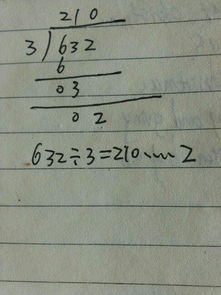 210
3)632
6
03
02
632÷3=210……2